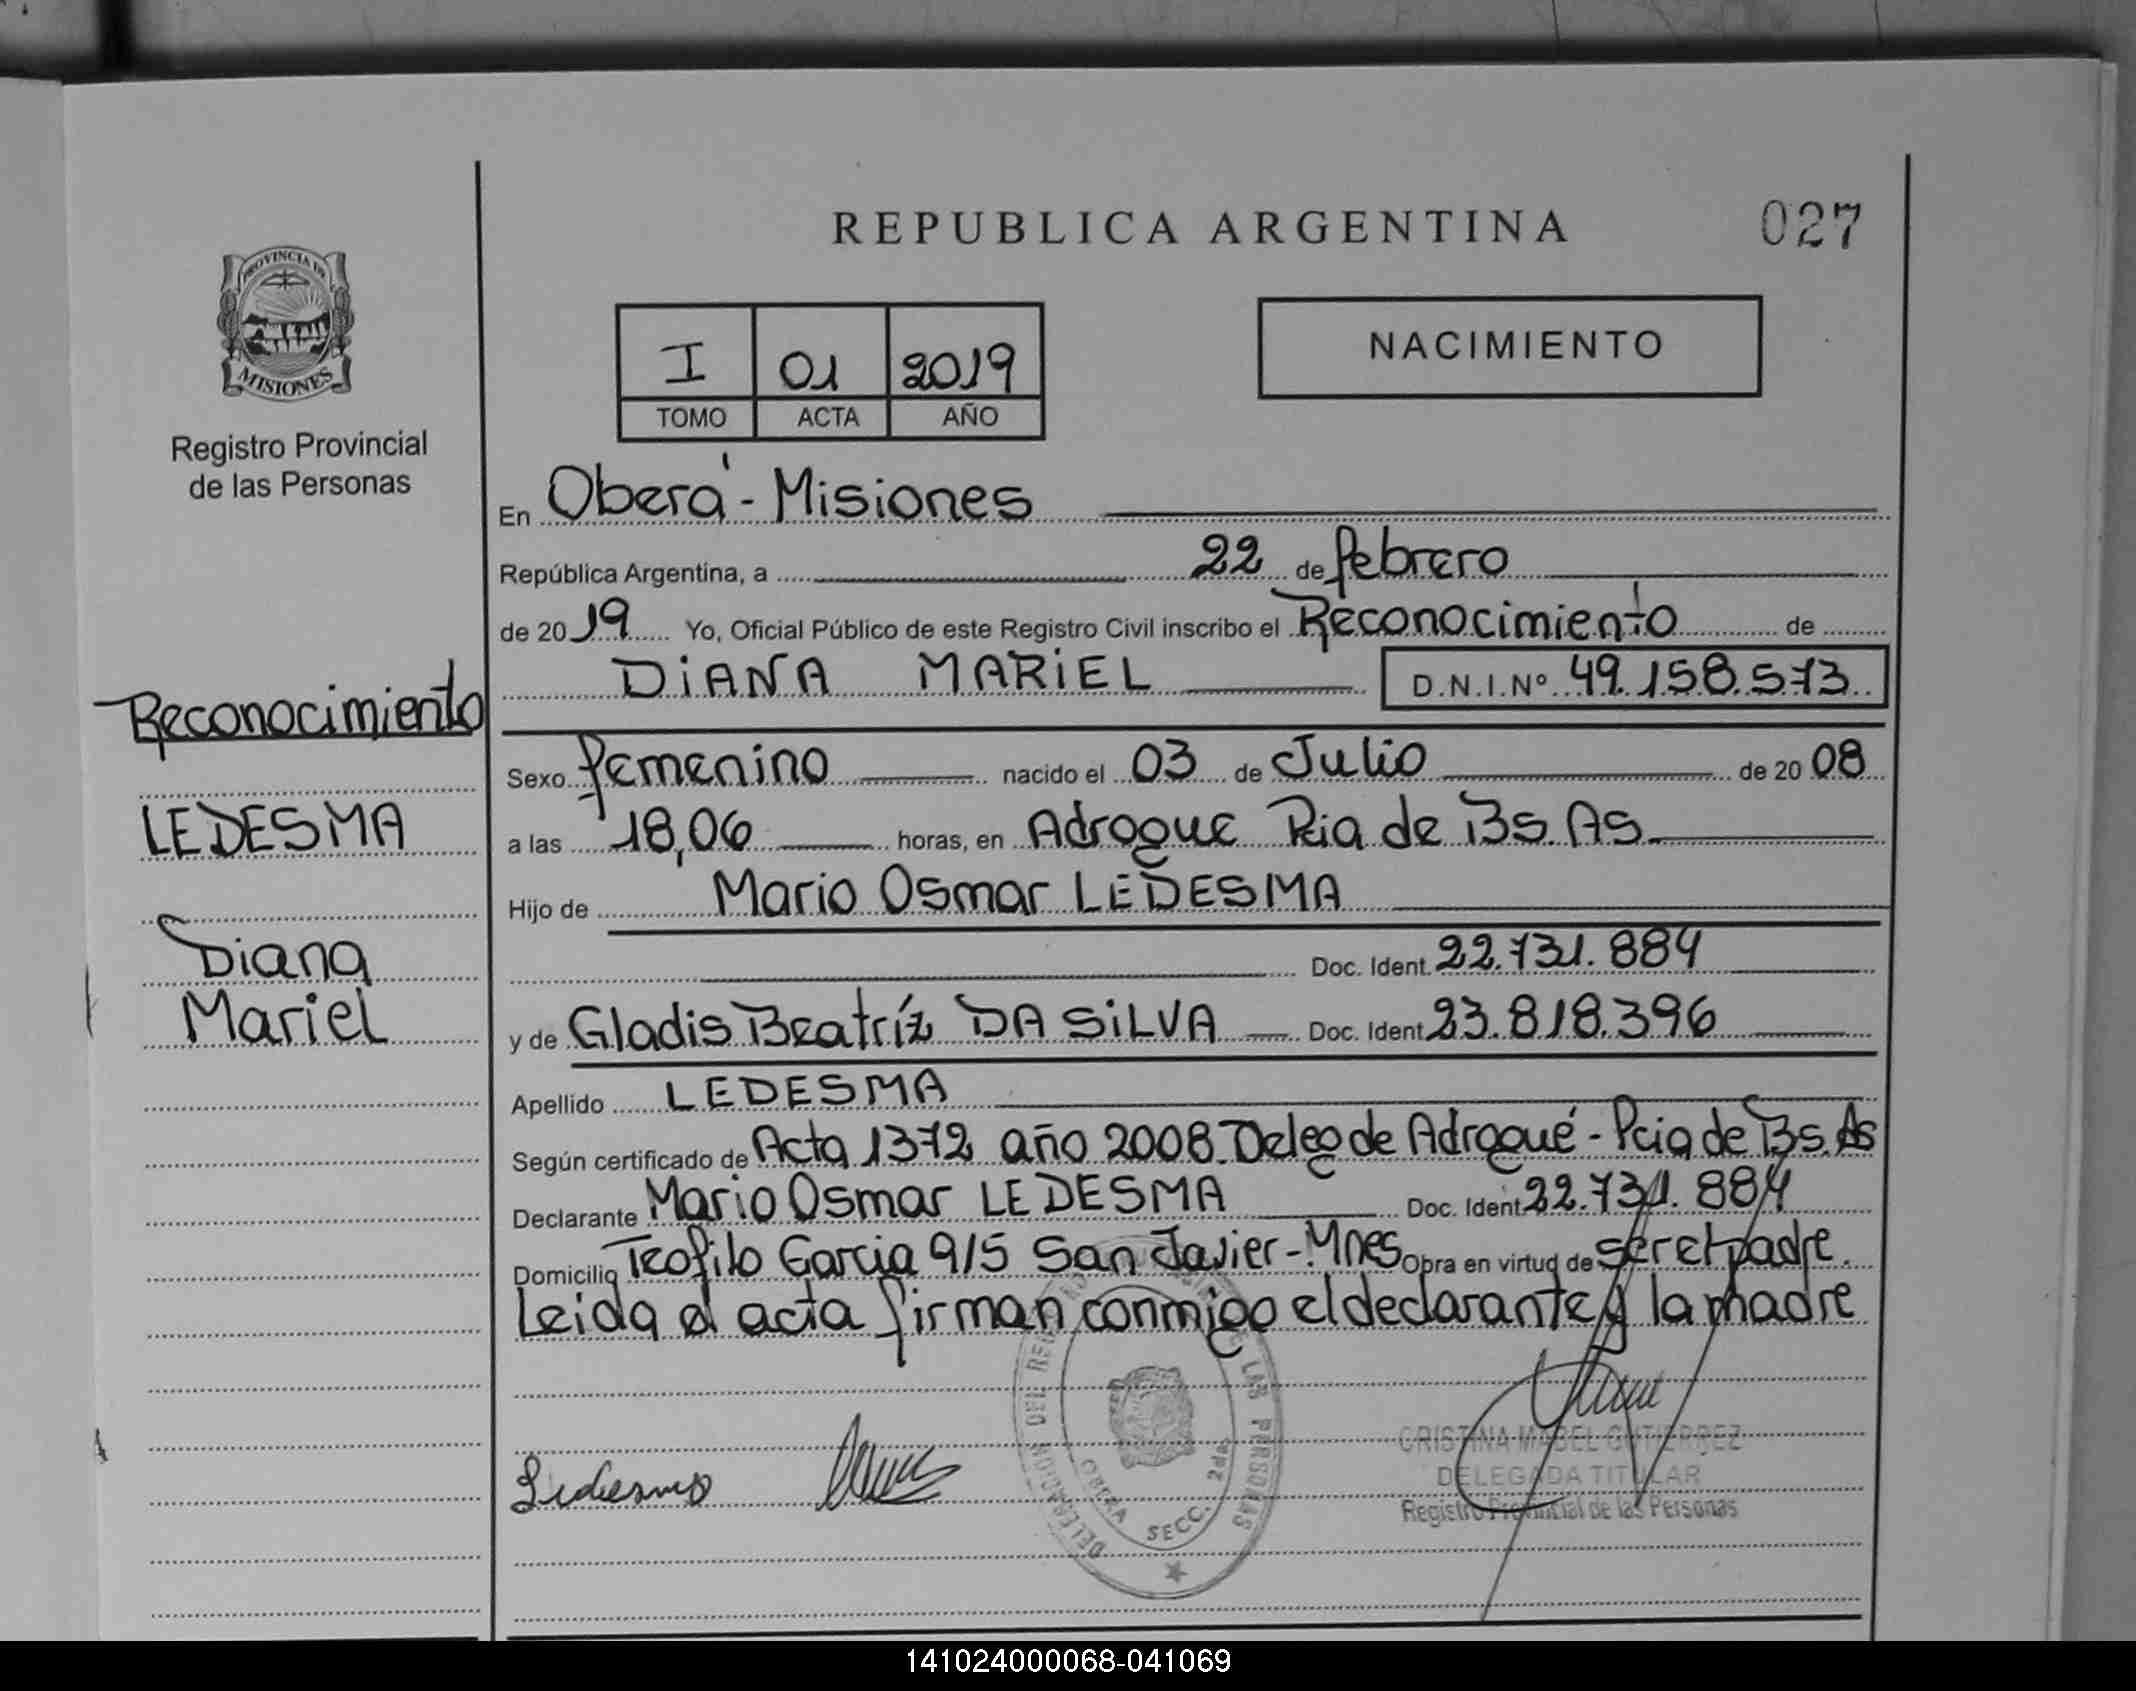 REPUBLICA ARGENTINA
027
PROVINCIA DE
MISIONES
Registro Provincial
de las Personas
I 01 2019
TOMO ACTA AÑO
NACIMIENTO
En Oberá - Misiones
República Argentina, a 22 de febrero
de 2019 Yo, Oficial Público de este Registro Civil inscribo el Reconocimiento de
DIANA MARIEL D.N.I.Nº 49.158.573
Reconocimiento
LEDESMA
Diana
Mariel
Sexo femenino nacido el 03 de Julio de 2008
a las 18,06 horas, en Adrogue Pcia de Bs. As.
Hijo de Mario Osmar LEDESMA
Doc. Ident. 22.731.884
y de Gladis Beatríz DA SILVA Doc. Ident. 23.818.396
Apellido LEDESMA
Según certificado de Acta 1372 año 2008. Deleg de Adrogué - Pcia de Bs. As
Declarante Mario Osmar LEDESMA Doc. Ident. 22.731.884
Domicilio Teofilo Garcia 915 San Javier - Mnes Obra en virtud de ser el padre.
Leida el acta firman conmigo el declarante y la madre
Ledesma
DELEGACION DEL REGISTRO LAS PERSONAS
OBERA SECC. 2da.
CRISTINA MABEL GUTIERREZ
DELEGADA TITULAR
Registro Provincial de las Personas
141024000068-041069